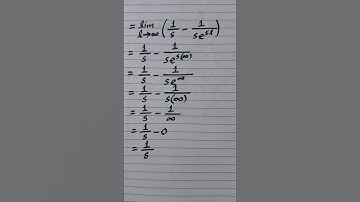 = lim l→∞ (1/s - 1/se^{sl})
= 1/s - 1/se^{s(∞)}
= 1/s - 1/se^∞
= 1/s - 1/s(∞)
= 1/s - 1/∞
= 1/s - 0
= 1/s